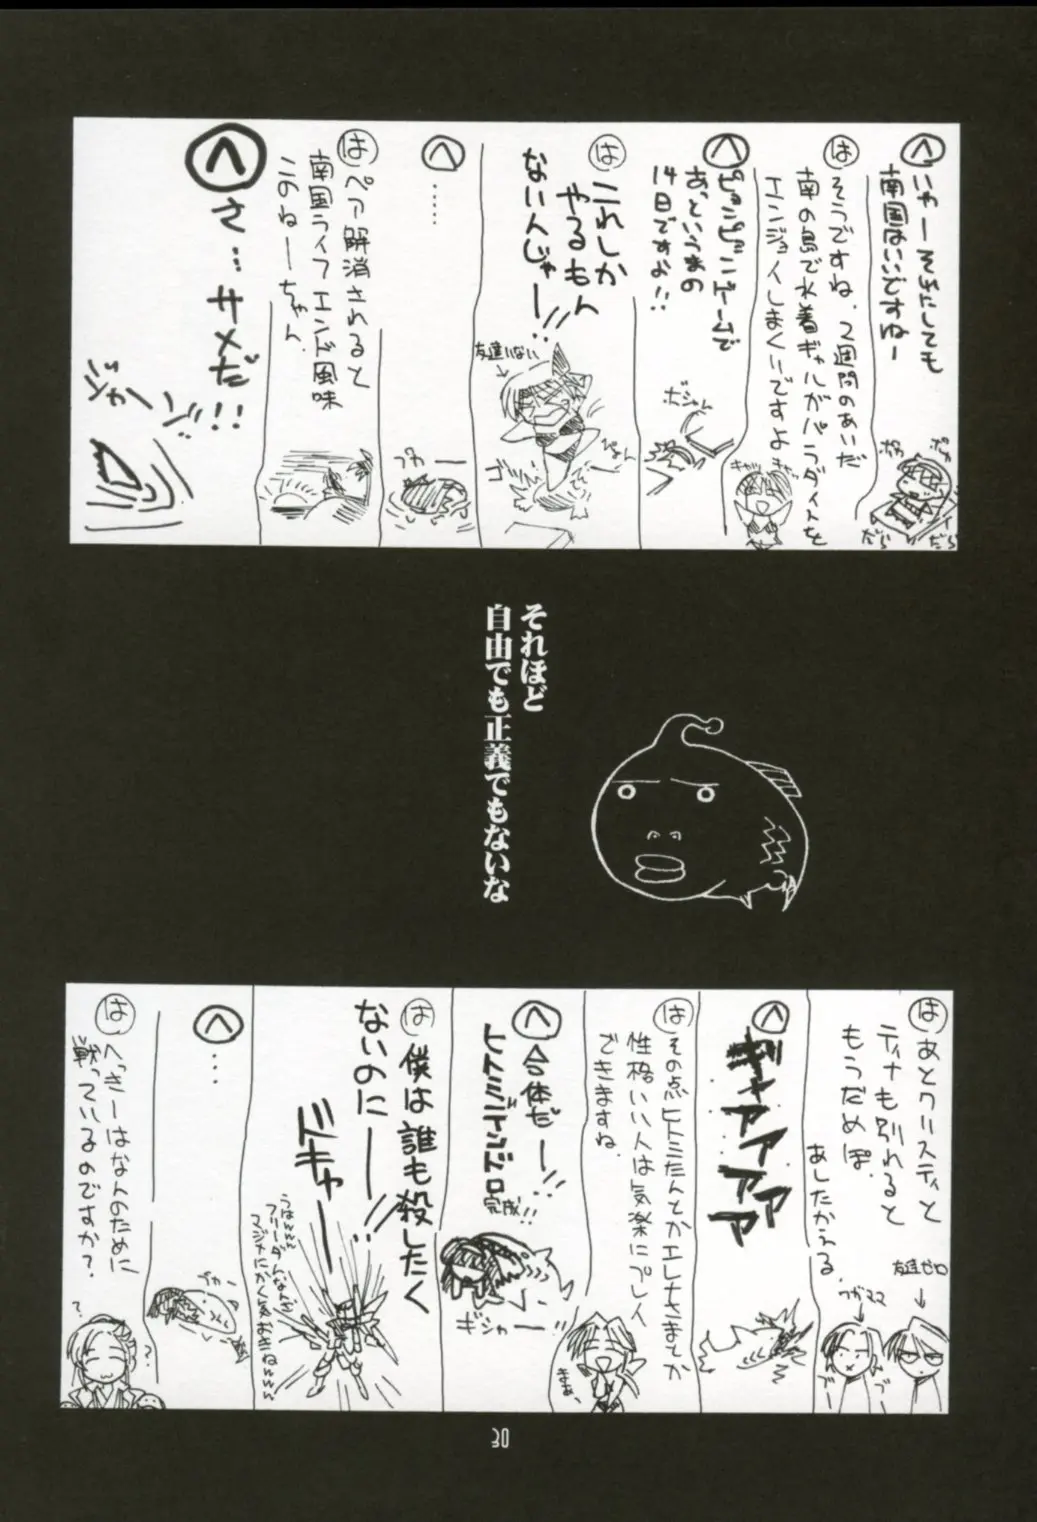 へ いやーそれにしても
南国はいいですねー
ボケ
ボケ
だら
だら
は そうですね、2週間のあいだ
南の島で水着ギャルがパラダイスを
エンジョイしまくいですよ
キャッ
へ ピョンピョンドームで
あっというまの
14日ですよ!!
ボシャん
は これしか
やるもん
ないんじゃー!!
友達いない
ゴッ
ぴょん
へ ……
プカー
は ペア解消されると
南国ライフエンド風味
このねーちゃん
へ さ…サメだ!!
それほど
自由でも正義でもないな
は あとクリスティと
ティナも別れると
もうだめぽ。
あしたかえる。
友達ゼロ
ブ
ブ
へ ギャアアアアア
は その点ヒトミたんとかエレナさまとか
性格いい人は気楽にプレイ
できますね。
まあ、
へ 合体だー!!
ヒトミデンドロ
完成!!
ギシャー
は 僕は誰も殺したく
ないのにーー!!
ドキャーー
へ …
プカー
は へっきーはなんのために
戦っているのですか?
?
?
30